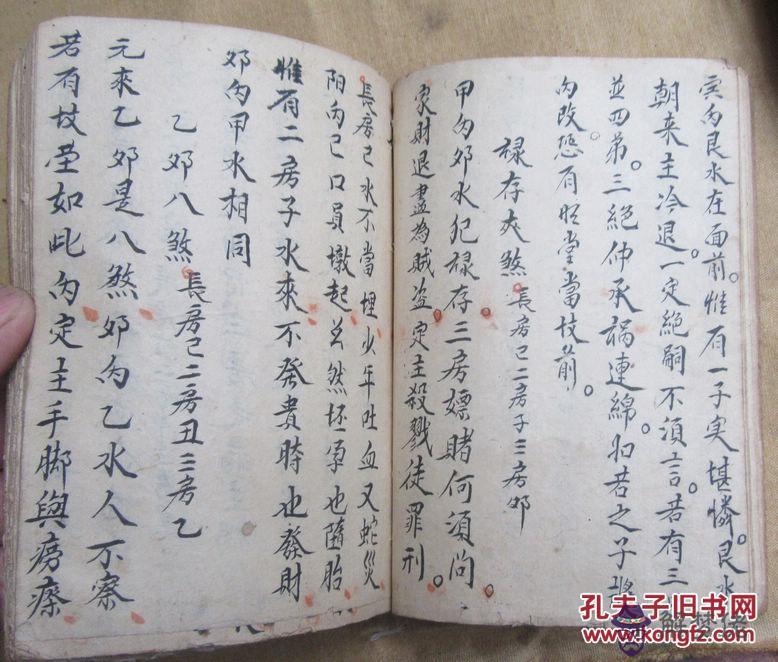 寅向艮水在面前。惟有一子实堪憐。艮水
朝来主冷退。一定絶嗣不須言。若有三
並四弟。三絶仲承禍連綿。如若之子
向改。恐有明堂當坟前。
禄存夾煞 長房己二房子三房卯
甲向卯水犯禄存三房嫖賭何須问
家財退盡為賊盗定主殺戮徒罪刑。
長房己水不當埋少年吐血又蛇災
阳向己口員墩起公然怀孕也隨胎
惟有二房子水來不發貴時也發財
卯向甲水相同
乙卯八煞 長房己二房丑三房乙
元來乙卯是八煞卯向乙水人不察
若有坟茔如此向定主手脚與癆瘵
孔夫子旧书网
www.kongfz.com
解梦佬